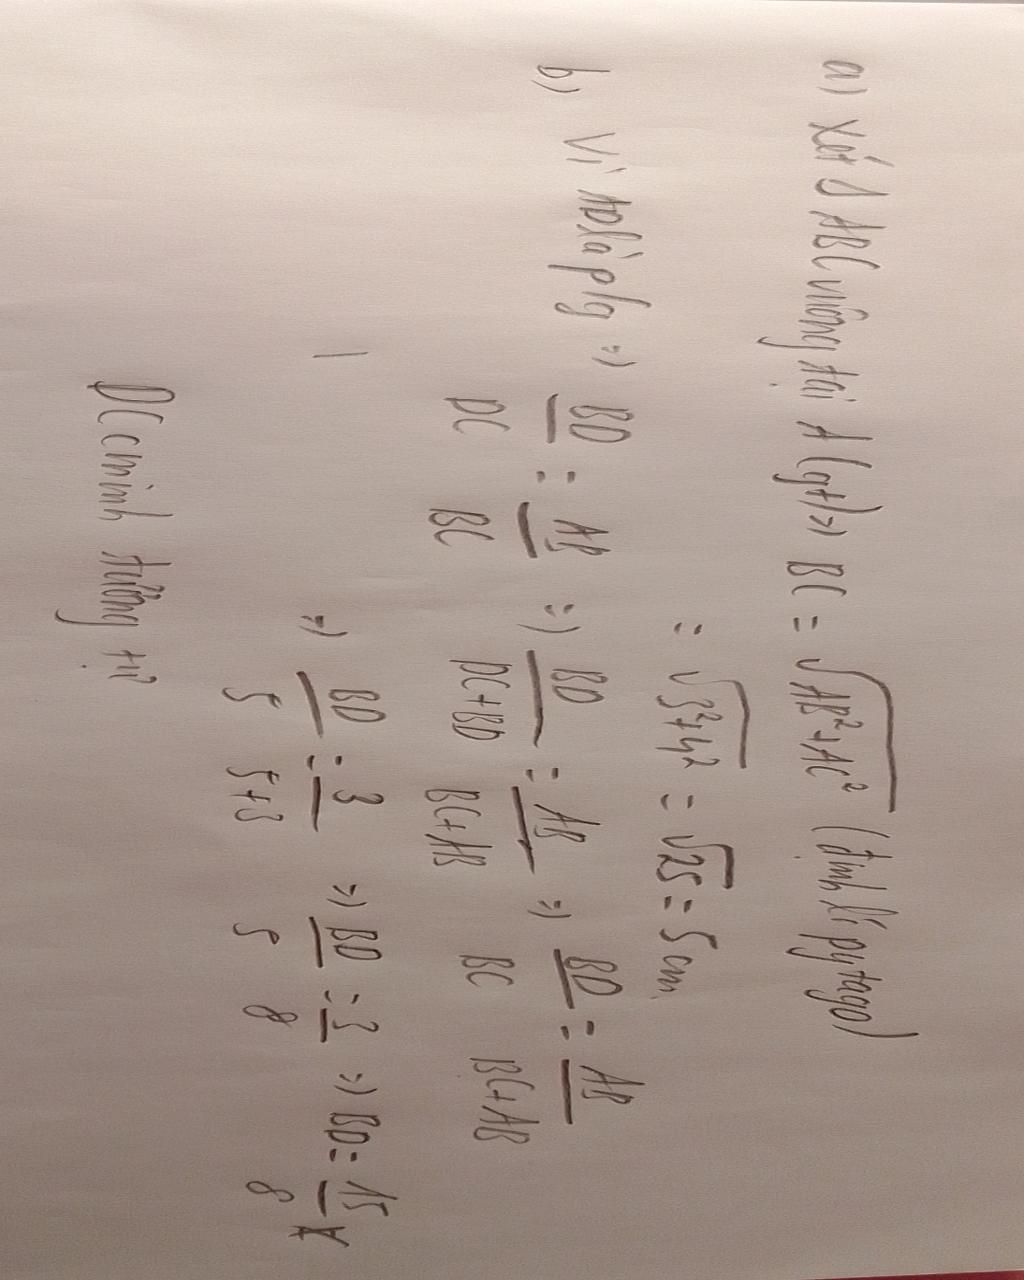 a) Xét Δ ABC vuông tại A (gt) => BC = √AB²+AC² (định lí pytago)
= √3²+4² = √25 = 5 cm
b) Vì AD là p/g => BD/DC = AB/BC => BD/DC+BD = AB/BC+AB => BD/BC = AB/BC+AB
=> BD/5 = 3/5+3 => BD/5 = 3/8 => BD = 15/8
DC cminh tương tự